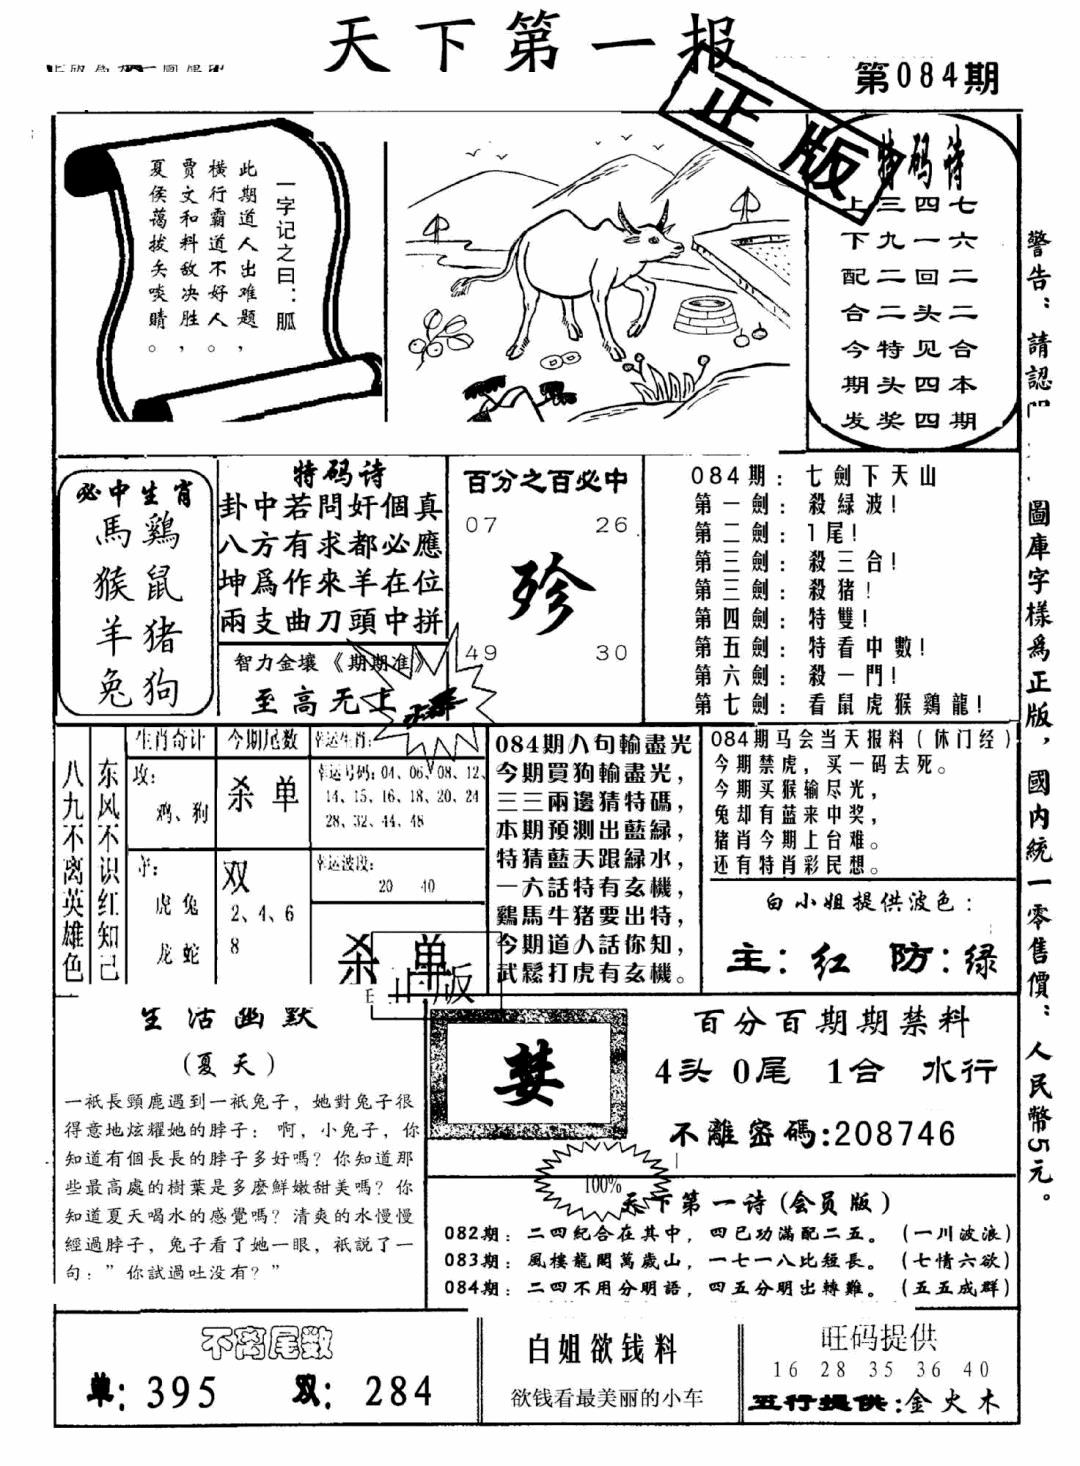 天下第一报
第084期
正版
一字记之曰：胍
此期道人出难题，
横行霸道不好人。
贾文和料敌决胜，
夏侯蔼拔矢啖睛。
特码诗
上三四七
下九一六
配二回二
合二头二
今特见合
期头四本
发奖四期
必中生肖
馬鷄
猴鼠
羊猪
兔狗
特码诗
卦中若問奸個真
八方有求都必應
坤爲作來羊在位
兩支曲刀頭中拼
智力金壤《期期准》
至高无上
百分之百必中
07 26
殄
49 30
084期：七劍下天山
第一劍：殺緑波！
第二劍：1尾！
第三劍：殺三合！
第三劍：殺猪！
第四劍：特雙！
第五劍：特看中數！
第六劍：殺一門！
第七劍：看鼠虎猴鷄龍！
八九不离英雄色
东风不识红知己
生肖奇计
攻：
鸡、狗
守：
虎兔
龙蛇
今期尾数
杀单
双
2、4、6
8
幸运生肖：
幸运号码：04、06、08、12、
14、15、16、18、20、24
28、32、44、48
幸运波段：
20 40
杀单
正版
084期八句輸盡光
今期買狗輸盡光，
三三兩邊猜特碼，
本期預測出藍緑，
特猜藍天跟緑水，
一六話特有玄機，
鷄馬牛猪要出特，
今期道人話你知，
武鬆打虎有玄機。
084期马会当天报料（休门经）
今期禁虎，买一码去死。
今期买猴输尽光，
兔却有蓝来中奖，
猪肖今期上台难。
还有特肖彩民想。
白小姐提供波色：
主：红 防：绿
生活幽默
(夏天)
一祇長頸鹿遇到一祇兔子，她對兔子很
得意地炫耀她的脖子：啊，小兔子，你
知道有個長長的脖子多好嗎？你知道那
些最高處的樹葉是多麽鮮嫩甜美嗎？你
知道夏天喝水的感覺嗎？清爽的水慢慢
經過脖子，兔子看了她一眼，祇説了一
句：”你試過吐没有？”
婪
百分百期期禁料
4头 0尾 1合 水行
不離密碼：208746
100%
天下第一诗(会员版)
082期：二四紀合在其中，四已功滿配二五。（一川波浪）
083期：風樓龍閣萬歲山，一七一八比短長。（七情六欲）
084期：二四不用分明語，四五分明出轉難。（五五成群）
不离尾数
单：395 双：284
白姐欲钱料
欲钱看最美丽的小车
旺码提供
16 28 35 36 40
五行提供：金火木
警告：請認
圖庫字樣爲正版，國内統一零售價：人民幣5元。